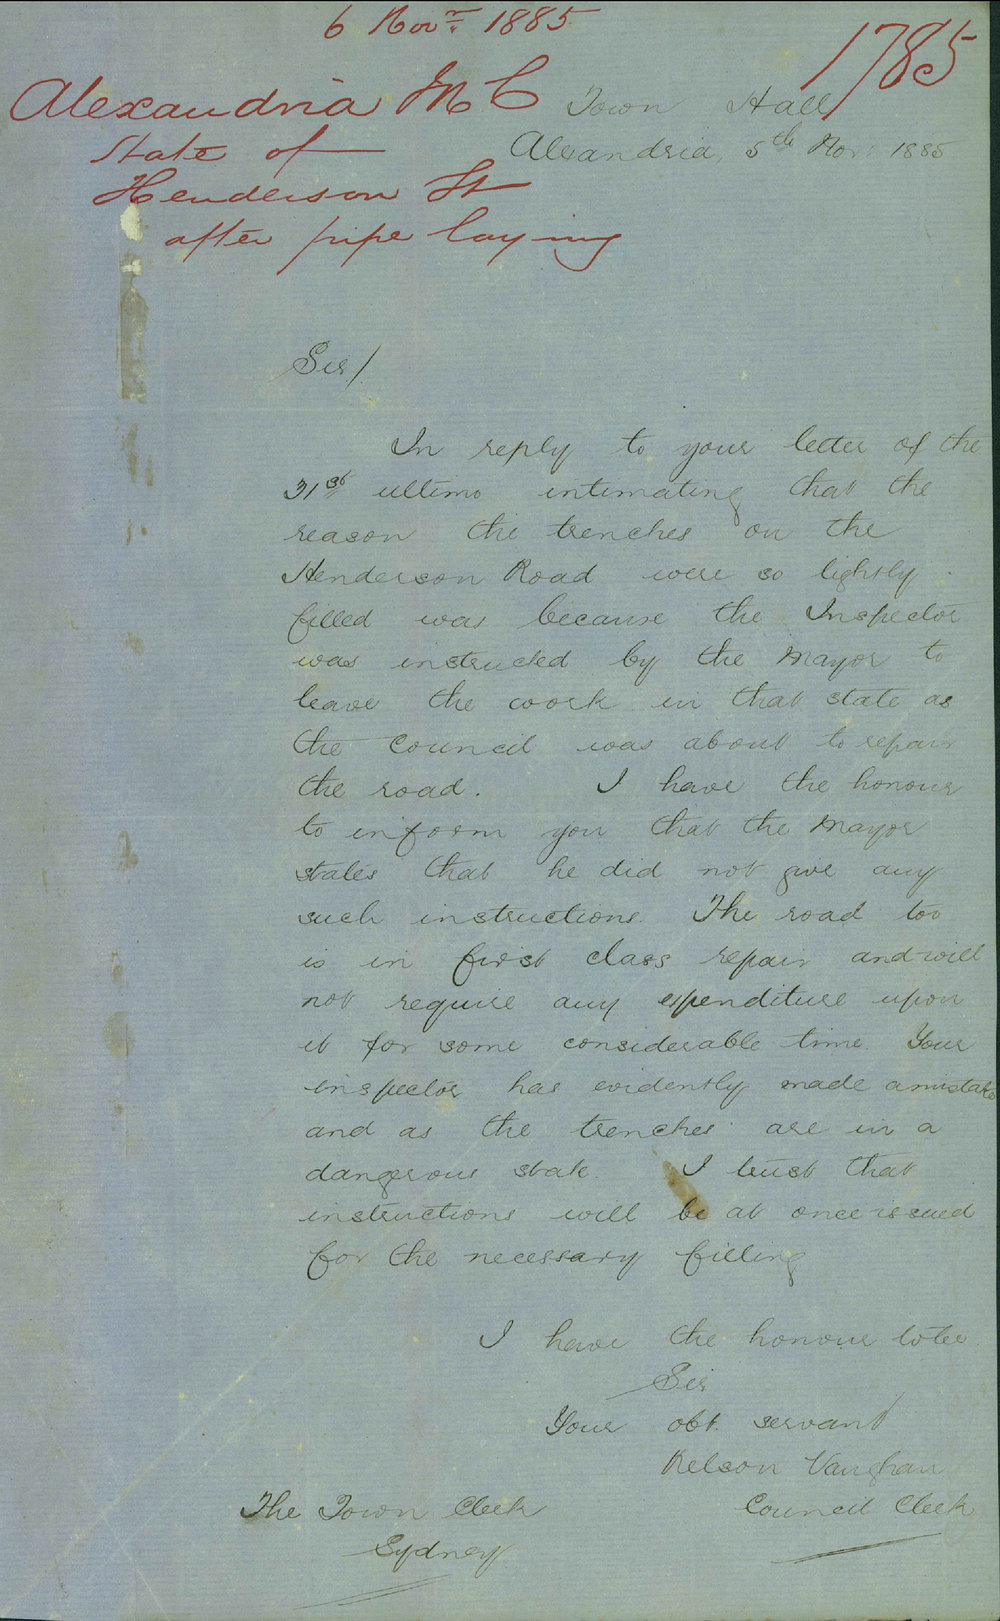 6 Novr. 1885
1785
Alexandria M C
State of
Henderson St
after pipe laying
Town Hall
Alexandria, 5th Nov: 1885
Sir/
In reply to your letter of the
31st ultimo intimating that the
reason the trenches on the
Henderson Road were so lightly
filled was because the Inspector
was instructed by the Mayor to
leave the work in that state as
the Council was about to repair
the road. I have the honour
to inform you that the Mayor
states that he did not give any
such instructions. The road too
is in first class repair and will
not require any expenditure upon
it for some considerable time. Your
inspector has evidently made a mistake
and as the trenches are in a
dangerous state. I trust that
instructions will be at once issued
for the necessary filling
I have the honour to be
Sir
Your obt. servant
Nelson Vaughan
Council Clerk
The Town Clerk
Sydney